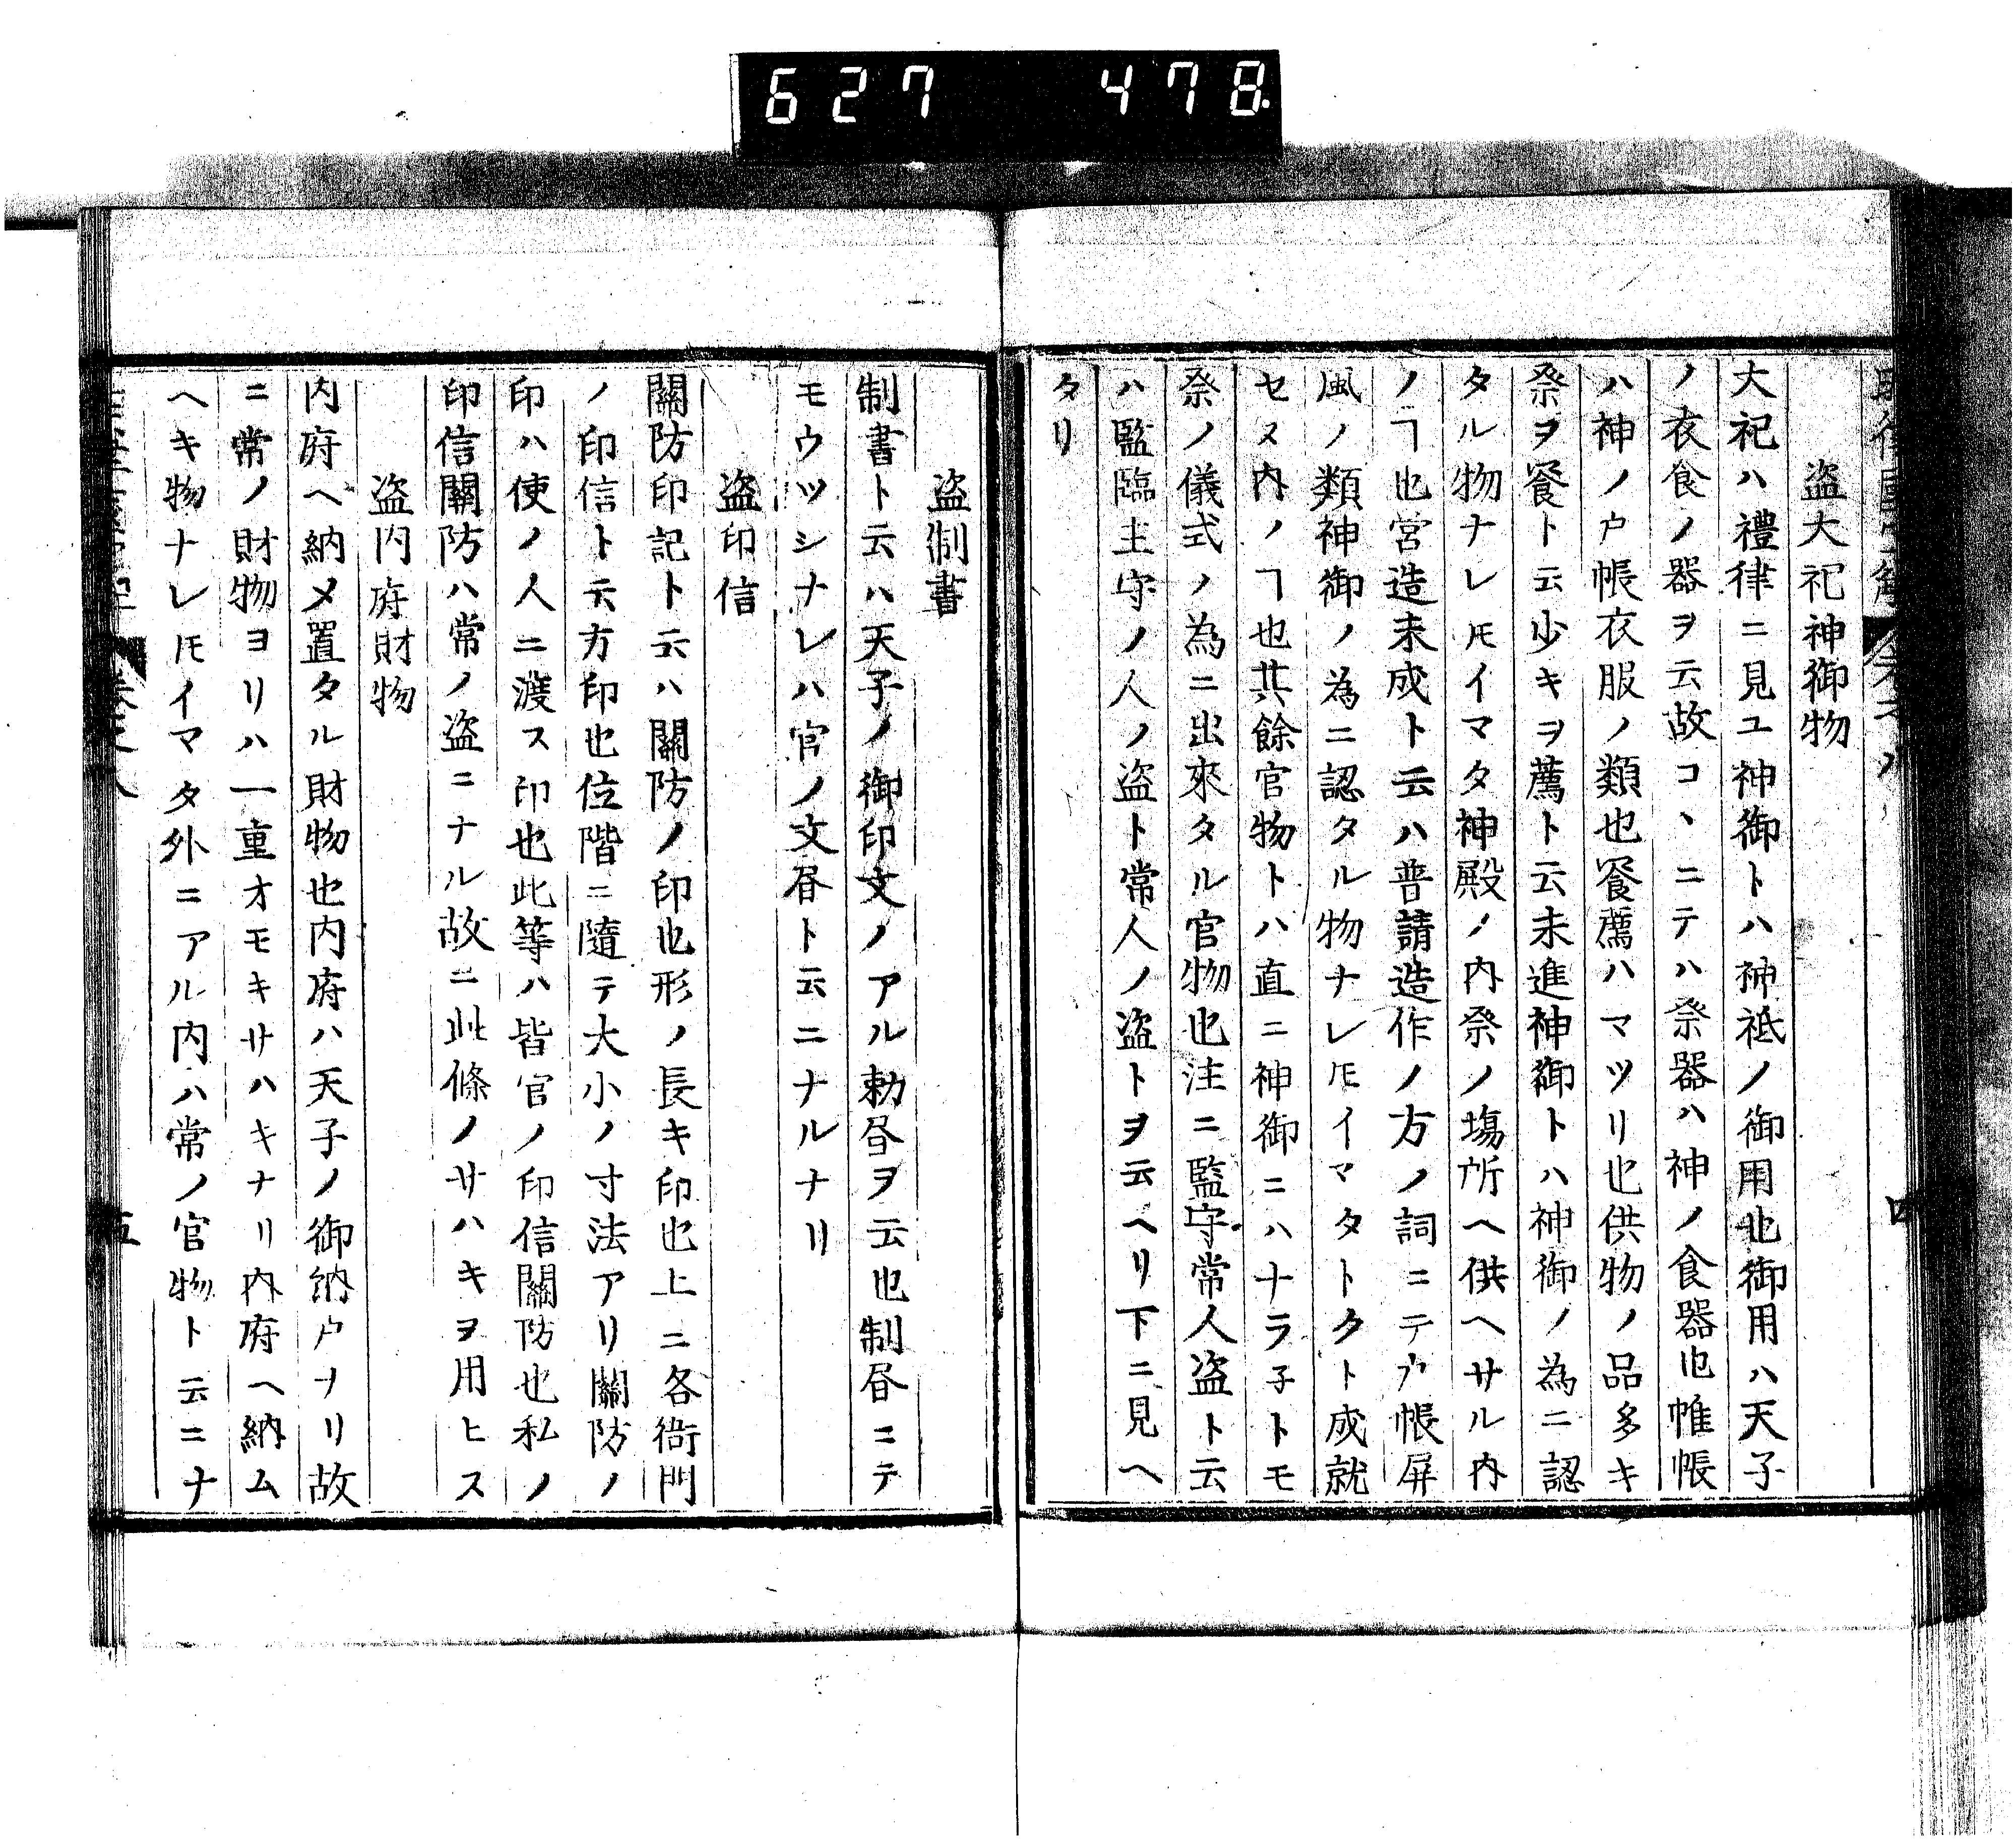 627 478
盗大祀神御物
大祀ハ禮律ニ見ユ神御トハ神祗ノ御用也御用ハ天子
ノ衣食ノ器ヲ云故コヽニテハ祭器ハ神ノ食器也帷帳
ハ神ノ戸帳衣服ノ類也饗薦ハマツリ也供物ノ品多キ
祭ヲ饗ト云少キヲ薦ト云未進神御トハ神御ノ為ニ認
タル物ナレ𪜈イマタ神殿ノ内祭ノ塲所ヘ供ヘサル内
ノヿ也営造未成ト云ハ普請造作ノ方ノ詞ニテ戸帳屏
風ノ類神御ノ為ニ認タル物ナレ𪜈イマタトクト成就
セヌ内ノヿ也其餘官物トハ直ニ神御ニハナラ子トモ
祭ノ儀式ノ為ニ出來タル官物也注ニ監守常人盗ト云
ハ監臨主守ノ人ノ盗ト常人ノ盗トヲ云ヘリ下ニ見ヘ
タリ
盗制書
制書ト云ハ天子ノ御印文ノアル勅昼ヲ云也制昼ニテ
モウツシナレハ官ノ文昼ト云ニナルナリ
盗印信
關防印記ト云ハ關防ノ印也形ノ長キ印也上ニ各衙門
ノ印信ト云方印也位階ニ隨テ大小ノ寸法アリ關防ノ
印ハ使ノ人ニ渡ス印也此等ハ皆官ノ印信關防也私ノ
印信關防ハ常ノ盗ニナル故ニ此條ノサハキヲ用ヒス
盗内府財物
内府ヘ納メ置タル財物也内府ハ天子ノ御納戸ナリ故
ニ常ノ財物ヨリハ一重オモキサハキナリ内府ヘ納ム
ヘキ物ナレ𪜈イマタ外ニアル内ハ常ノ官物ト云ニナ
五